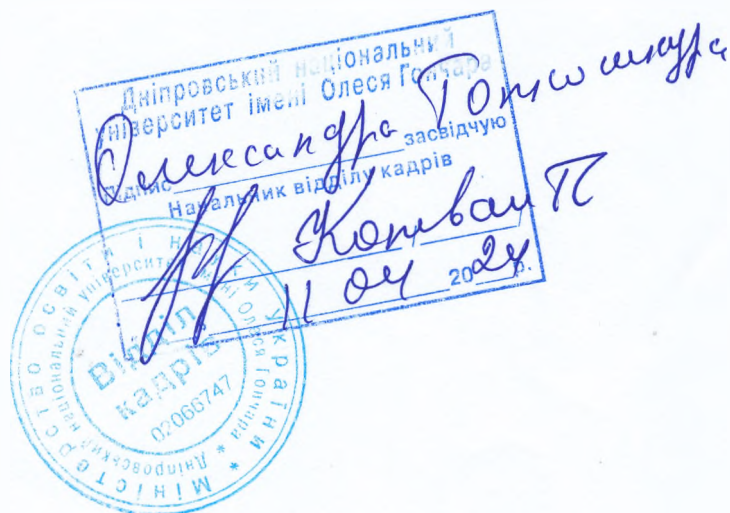 Дніпровський національний
університет імені Олеся Гончара
Олександра
Підпис засвідчую
Начальник відділу кадрів
11 04 2024 р.
Міністерство освіти і науки України
Дніпровський національний університет імені Олеся Гончара
Відділ
кадрів
02066747